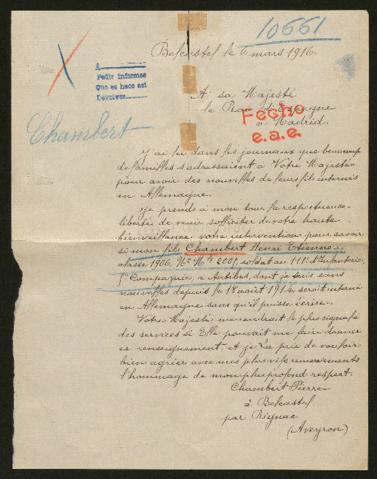 10551
Belcastel le 6 mars 1916.
A
Pedir informes
Que se hace est
Devolver
A sa Majesté
le Roi d'Espagne
à Madrid.
Fecho
e.a.e.
Chambert
J'ai lu dans les journaux que beaucoup
de familles s'adressaient à Votre Majesté
pour avoir des nouvelles de leurs fils internés
en Allemagne.
Je prends à mon tour la respectueuse
liberté de venir solliciter de votre haute
bienveillance votre intervention pour savoir
si mon fils Chambert Henri Etienne
classe 1906, Nº Mle 2001, soldat au 111e d'Infanterie,
Compagnie, à Antibes, dont je suis sans
nouvelles depuis le 18 août 1914, serait interné
en Allemagne sans qu'il puisse écrire.
Votre Majesté me rendrait le plus signalé
des services si Elle pouvait me faire donner
ce renseignement, et je La prie de vouloir
bien agréer avec mes plus vifs remerciements
l'hommage de mon plus profond respect.
Chambert Pierre
à Belcastel
par Rignac
(Aveyron)